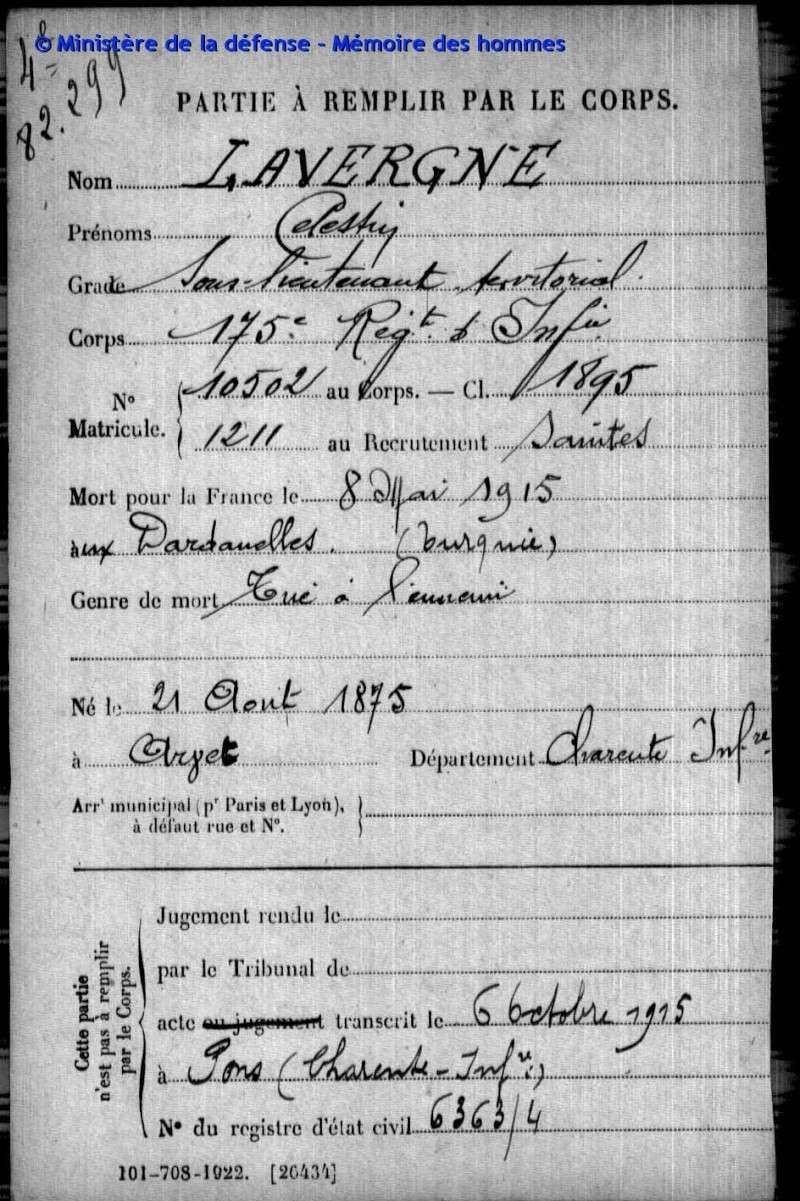 © Ministère de la défense - Mémoire des hommes
4e
82.299
PARTIE À REMPLIR PAR LE CORPS.
Nom LAVERGNE
Prénoms Celestin
Grade Sous-lieutenant territorial.
Corps 175e Régt. d'Infie
No Matricule. 10502 au Corps. — Cl. 1895
1211 au Recrutement Saintes
Mort pour la France le 8 Mai 1915
aux Dardanelles. (Turquie)
Genre de mort Tué à l'ennemi
Né le 21 Août 1875
à Département Charente Infre
Arrt municipal (pr Paris et Lyon),
à défaut rue et No.
Cette partie
n'est pas à remplir
par le Corps.
Jugement rendu le
par le Tribunal de
acte ou jugement transcrit le 6 Octobre 1915
à Pons (Charente-Infre.)
No du registre d'état civil 6363/4
101-708-1922. [26434]